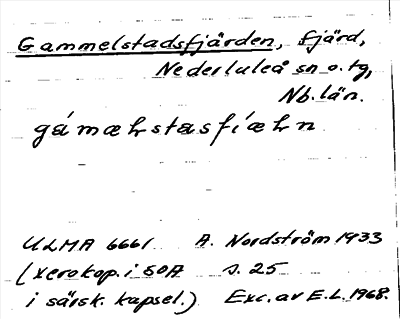 Gammelstadsfjärden, fjärd,
Nederluleå sn o. tg,
Nb. län.
gámæLstasfíæLn
ULMA 6661 A. Nordström 1933
(xerokop. i SOA s. 25
i särsk. kapsel.) Exc. av E.L. 1968.